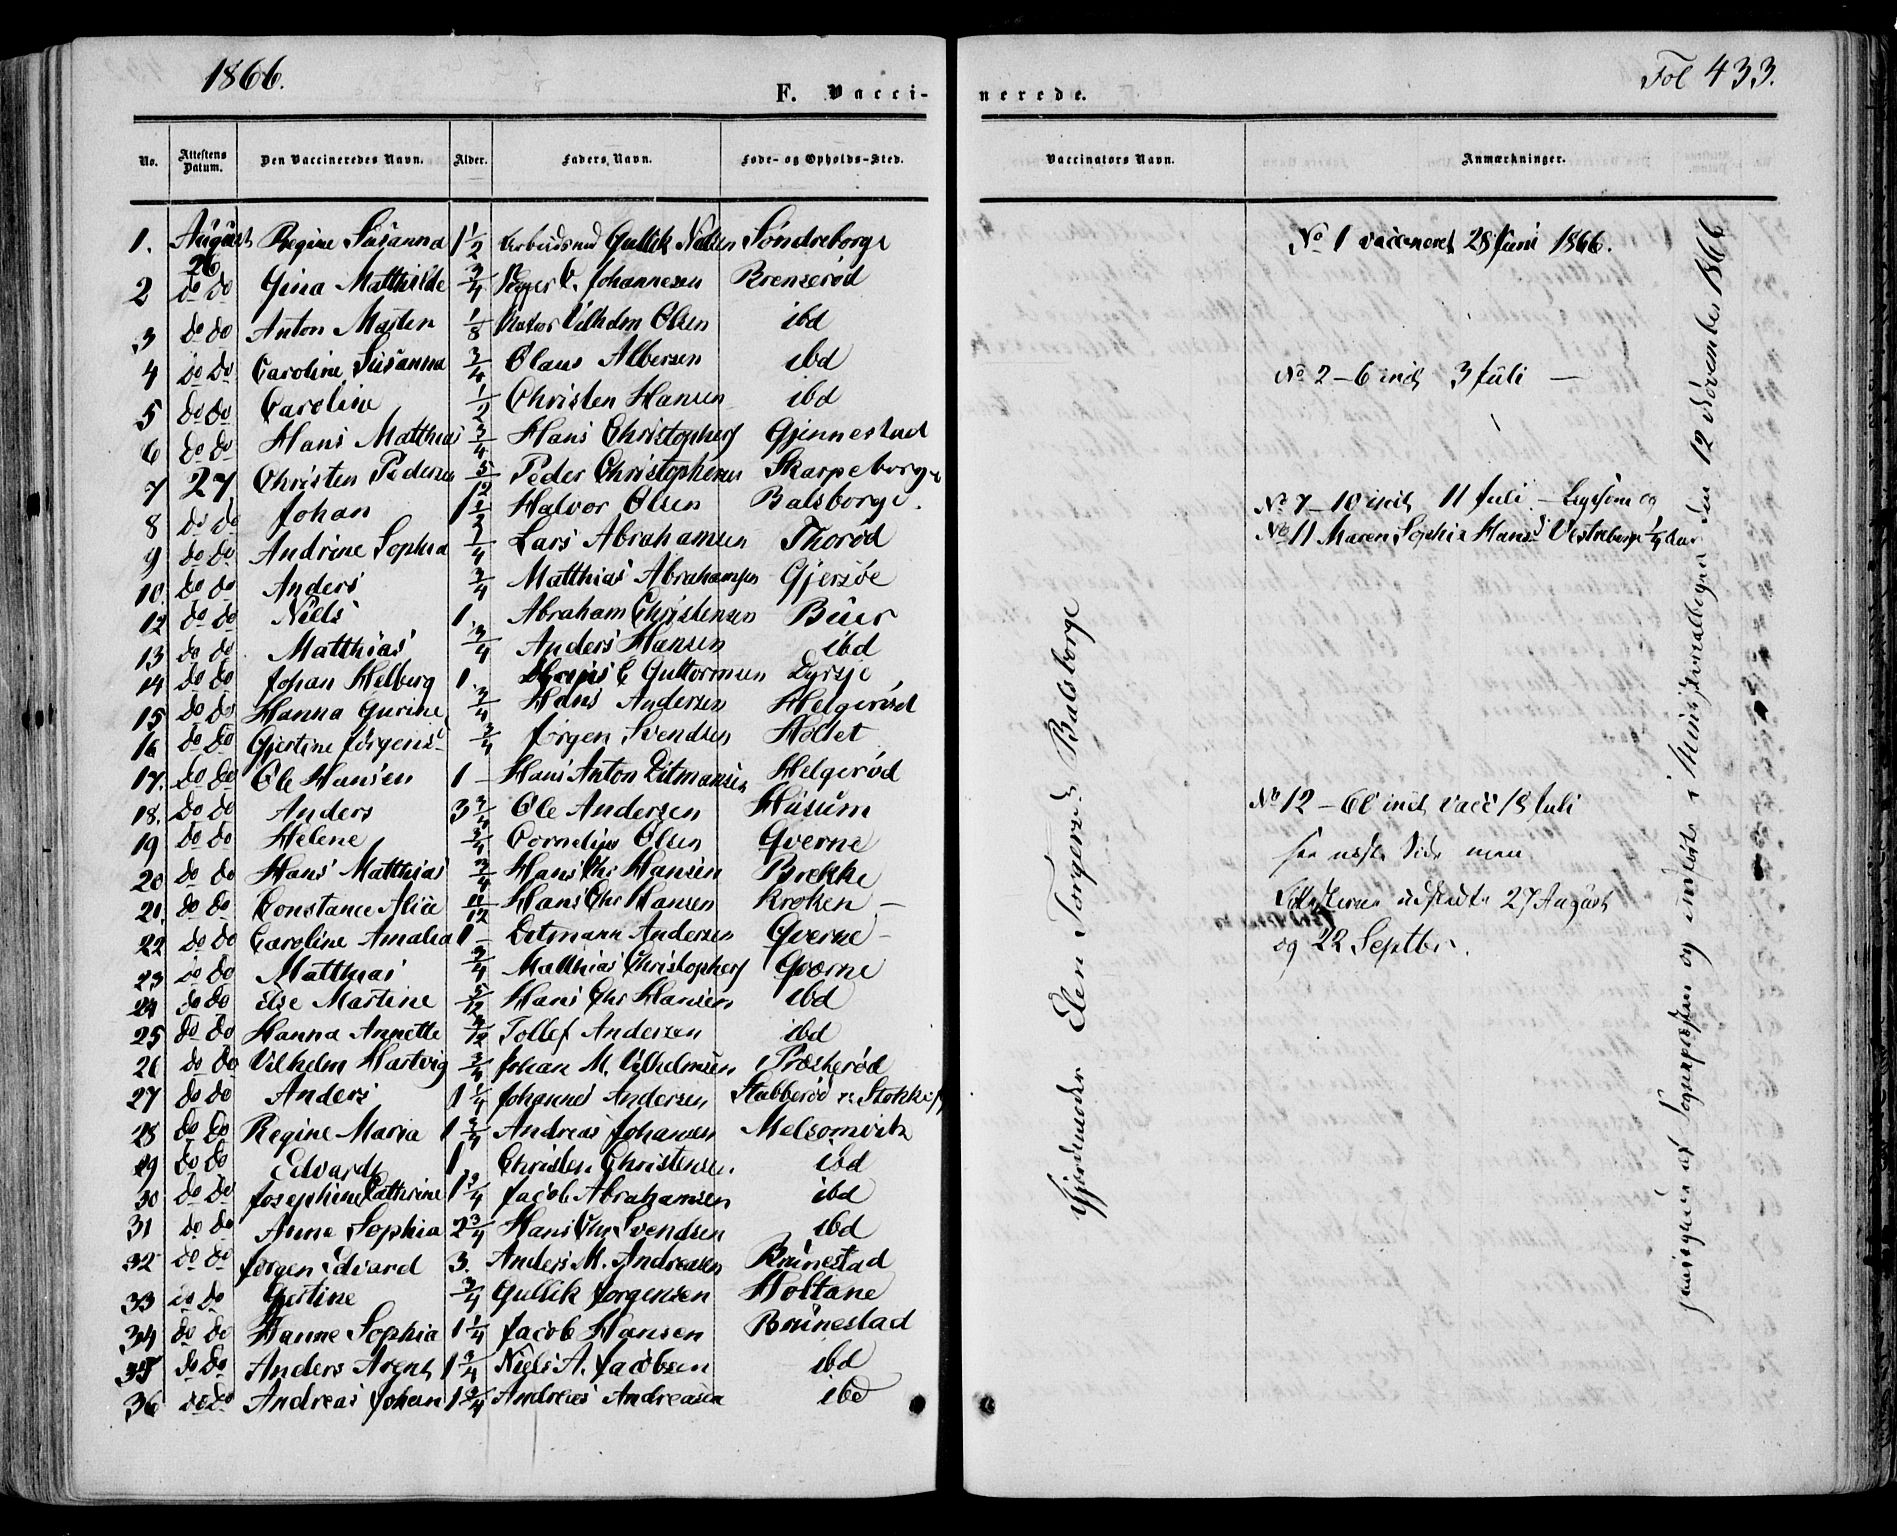 1866.
F. Vacci-
nerede.
Fol 433.
No. Attestens Datum. Den Vaccineredes Navn. Alder. Faders Navn. Føde- og Opholds-Sted.
Vaccinators Navn. Anmærkninger.
1. August 26 Regine Susanna 1 1/2 Gullik Nilsen Søndreborge
2 do do Gina Matthilde 3/4 Johannesen Brenserød
3 do do Anton Marten 1/8 Vilhelm Olsen ibd
4 do do Caroline Susanna 3/4 Olaus Albersen ibd
5 do do Caroline 1/2 Christen Hansen ibd
6 do do Hans Matthias 3/4 Hans Christophers Gjennestad
7 27 Christen Pedersen 5/12 Peder Christophersen Skarpeborge
8 do do Johan 1 1/2 Halvor Olsen Balsborge.
9 do do Andrine Sophia 1/4 Lars Abrahamsen Thorød
10. do do Anders 3/4 Matthias Abrahamsen Gjersøe
12 do do Niels 1. Abraham Christensen Buer
13 do do Matthias 3/4 Anders Hansen ibd
14 do do Johan Helberg 1. C Guttormsen Dyrsje
15 do do Hanna Gurine 3/4 Hans Andersen Helgerød
16 do do Gjertine Jørgens 3/4 Jørgen Svendsen Holtet
17. do do Ole Hansen 1 - Hans Anton Ditmansen Helgerød
18. do do Anders 3 3/4 Ole Andersen Husum
19 do do Helene 3/4 Cornelius Olsen Qverne
20 do do Hans Matthias 3/4 Hans Chr Hansen Brekke
21 do do Constance Alice 11/12 Hans Chr Hansen Kroken -
22 do do Caroline Amalia 1 - Ditmann Andersen Qverne -
23 do do Matthias 3/4 Matthias Christophers Qværne
24 do do Else Martine 5/12 Hans Chr Hansen ibd
25 do do Hanna Annette Tollef Andersen ibd
26 do do Vilhelm Hartvig 3/4 Johan M. Vilhelmsen Præsterød
27 do do Anders 1 1/4 Johannes Andersen Stubberød
28 do do Regine Maria 1 3/4 Andreas Johansen Melsomvik
29 do do Edvard 1 Christen Christensen. ibd
30 do do Josephine Cathrine 1 3/4 Jacob Abrahamsen ibd
31 do do Anne Sophia 2 3/4 Hans Chr Svendsen ibd
32 do do Jørgen Edvard 3. Anders M. Andreasen Brunestad
33 do do Gjertine 3/4 Gullik Jørgensen Holtane
34 do do Hanne Sophia 1 1/4 Jacob Hansen Brunestad
35 do do Anders Arent 1 3/4 Niels A. Jacobsen ibd
36 do do Andreas Johan 1 3/4 Andreas Andreasen ibd
Gjordemoder Elen Torgersen Balsborge
No 1 vaccineret 28 Juni 1866.
No 2 - 6 incl 3 Juli -
No 7 - 10 incl 11 Juli -
No 11 Maren Sophie Hans Vestreborge 1/4 Aar
No 12 - 60 incl vacc 18 Juli
see næste Side men
Attesterne udstedte 27 August
og 22 Septbr.
af Sognepræsten og indført i Ministerialbogen den 12 November 1866